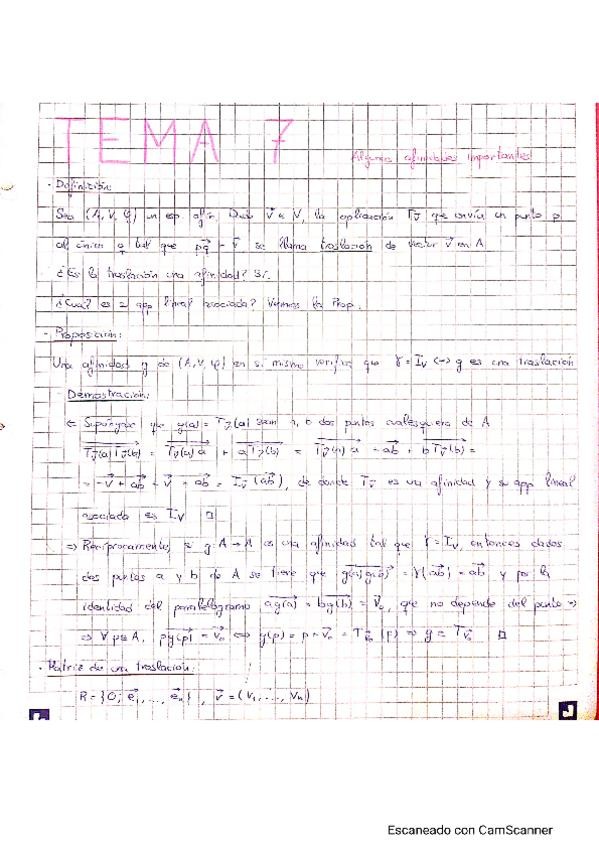 TEMA 7
Algunas afinidades importantes
· Definición:
Sea (A, V, φ) un esp. afín. Dado v⃗ ∈ V, la aplicación T_v⃗ que envía un punto p
al único q tal que p⃗q = v⃗ se llama traslación de vector v⃗ en A
¿Es la traslación una afinidad? Sí.
¿Cuál es app lineal asociada? Veamos la Prop.
· Proposición:
Una afinidad g de (A, V, φ) en sí mismo verifica que γ = I_V ⟺ g es una traslación
Demostración:
⇐ Supongamos que g(a) = T_v⃗(a) sean a, b dos puntos cualesquiera de A
T_v⃗(a)T_v⃗(b) = T_v⃗(a)a + aT_v⃗(b) = T_v⃗(a)a + ab + bT_v⃗(b) =
= -v⃗ + ab + v⃗ = ab = I_V(ab), de donde T_v⃗ es una afinidad y su app lineal
asociada es I_V □
⇒ Recíprocamente, si g: A → A es una afinidad tal que γ = I_V, entonces dados
dos puntos a y b de A se tiene que g(a)g(b) = γ(ab) = ab y por la
identidad del paralelogramo ag(a) = bg(b) = v⃗₀, que no depende del punto ⇒
⇒ ∀p∈A, pg(p) = v⃗₀ ⟺ g(p) = p + v⃗₀ = T_v⃗₀(p) ⇒ g = T_v⃗₀ □
· Matriz de una traslación:
R = {O; e⃗₁, ..., e⃗ₙ}, v⃗ = (v₁, ..., vₙ)
Escaneado con CamScanner